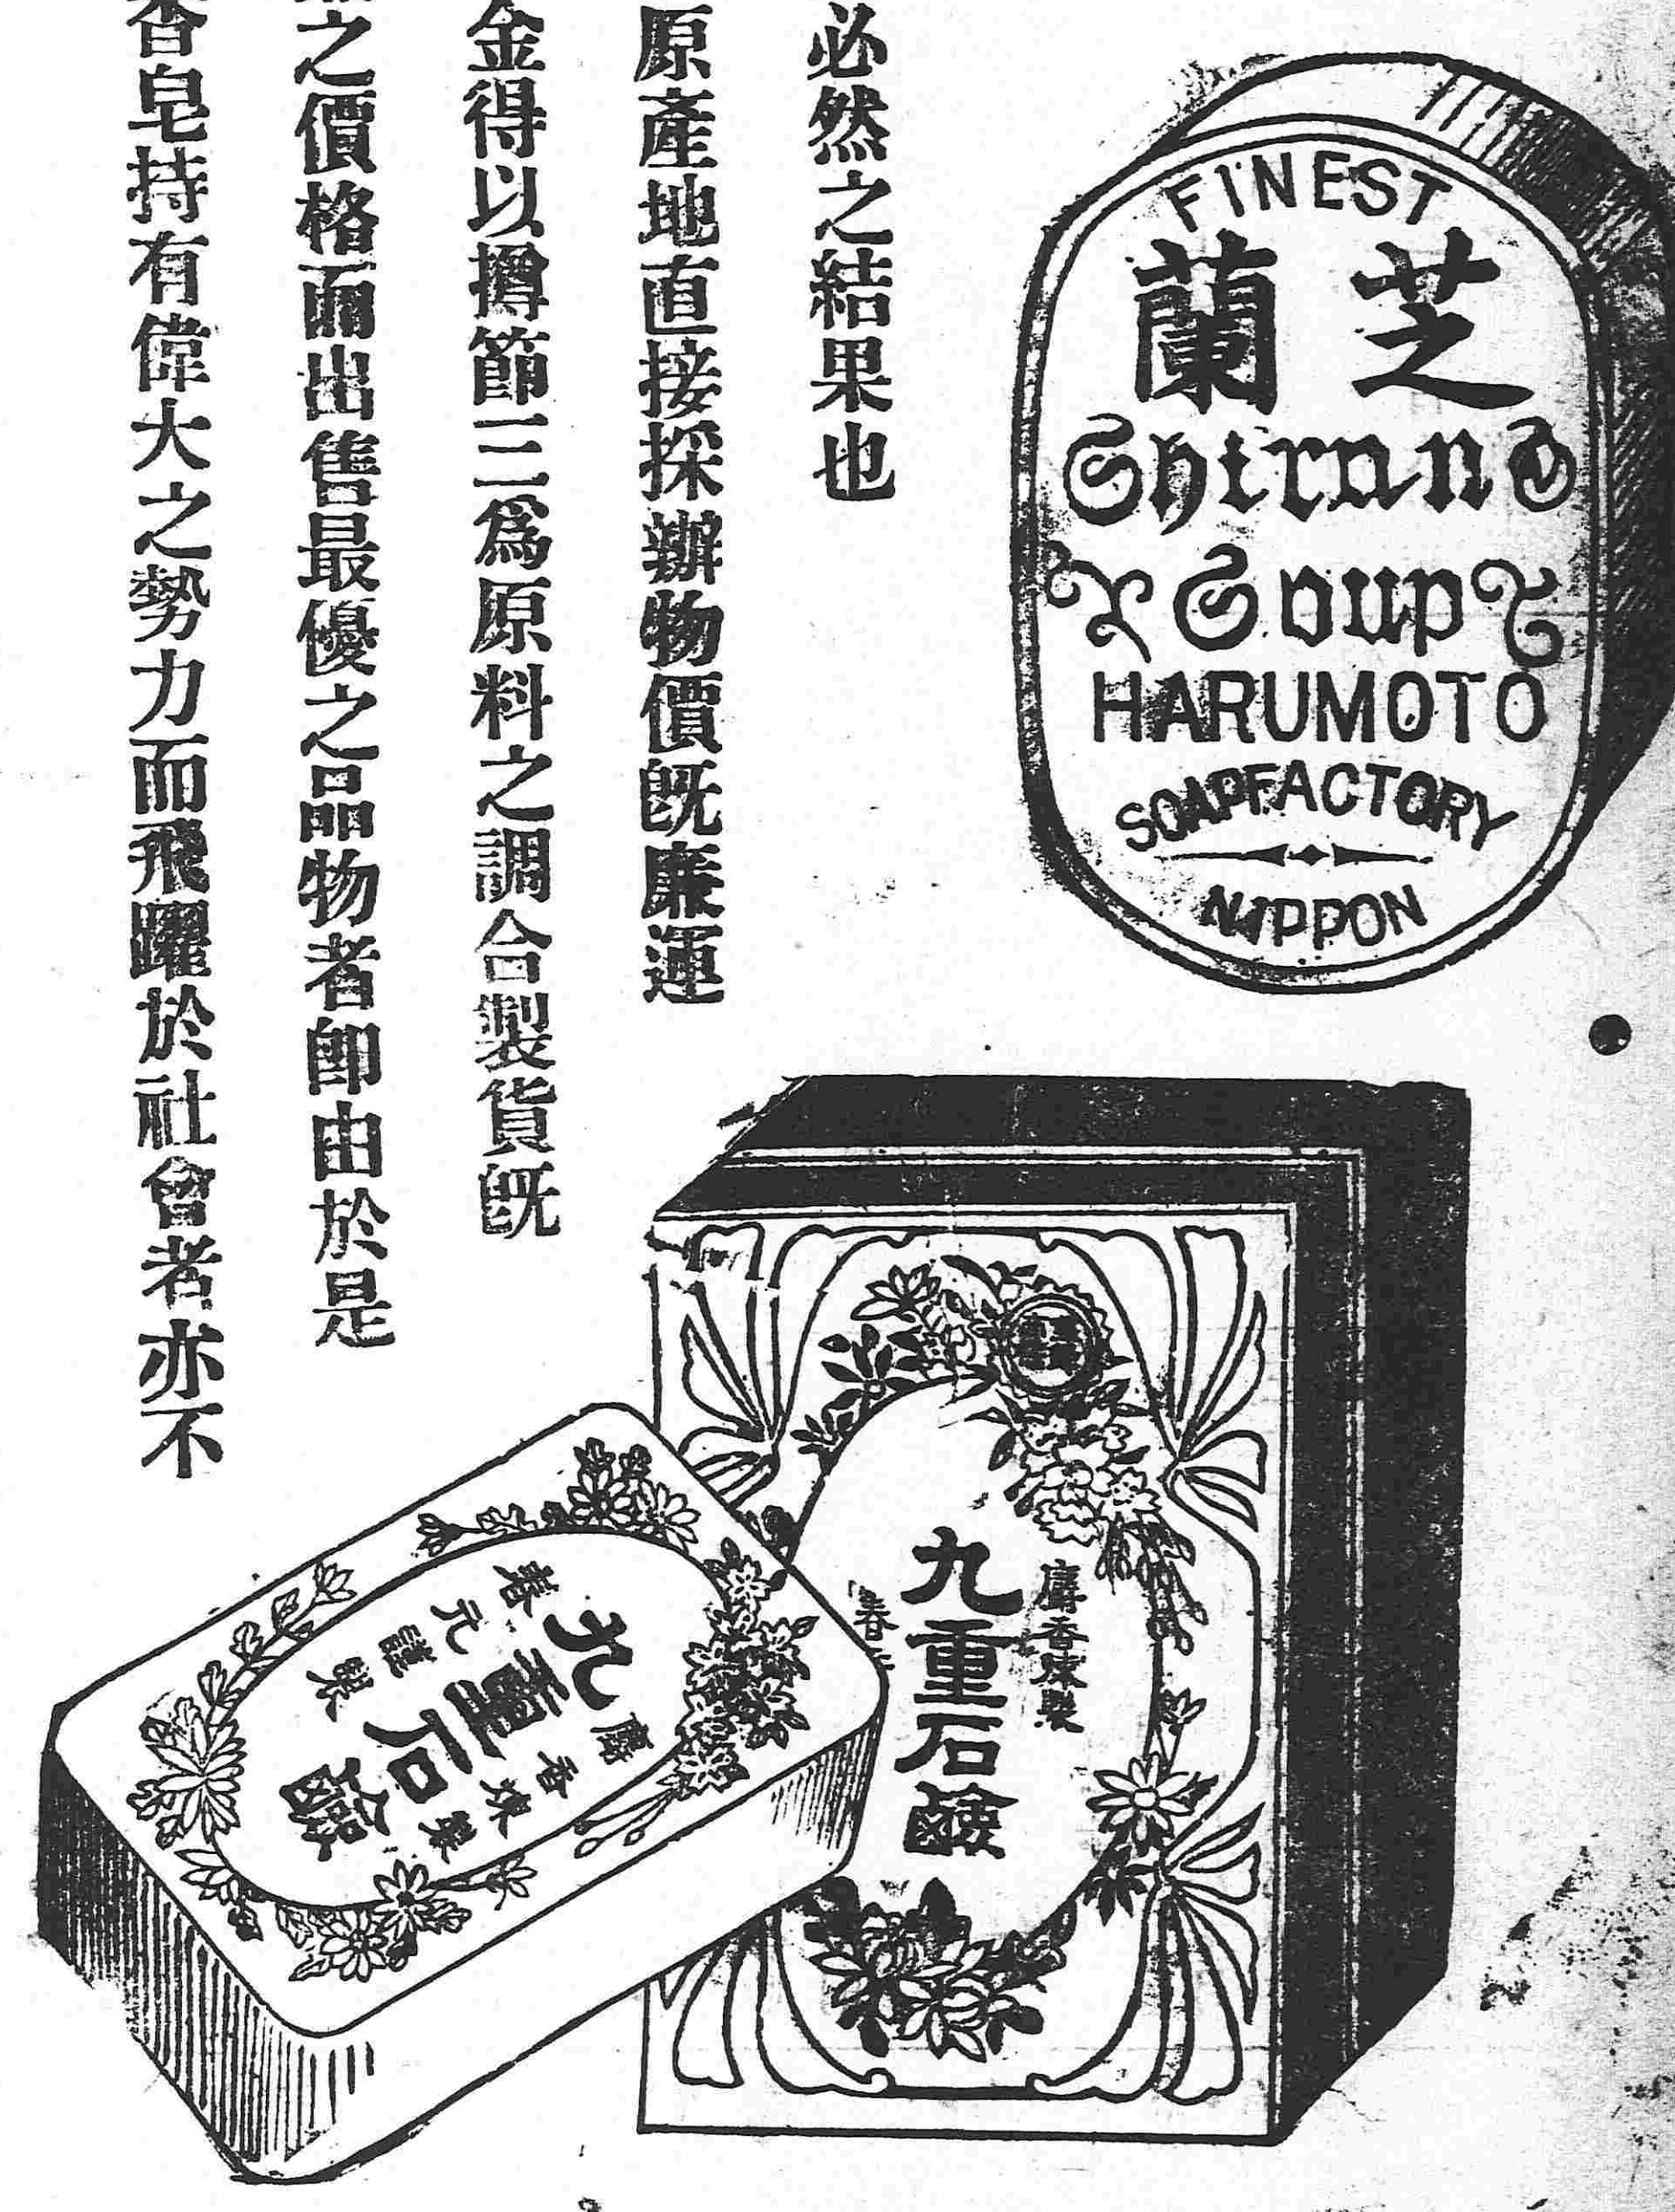 FINEST
芝蘭
Shiran
Soup
HARUMOTO
SOAPFACTORY
NIPPON
必然之結果也
原產地直接採辦物價既廉運
金得以撙節三爲原料之調合製貨既
之價格而出售最優之品物者卽由於是
香皂持有偉大之勢力而飛躍於社會者亦不
麝香煉製
九重石鹼
春
麝香煉製
九重石鹼
春元謹製